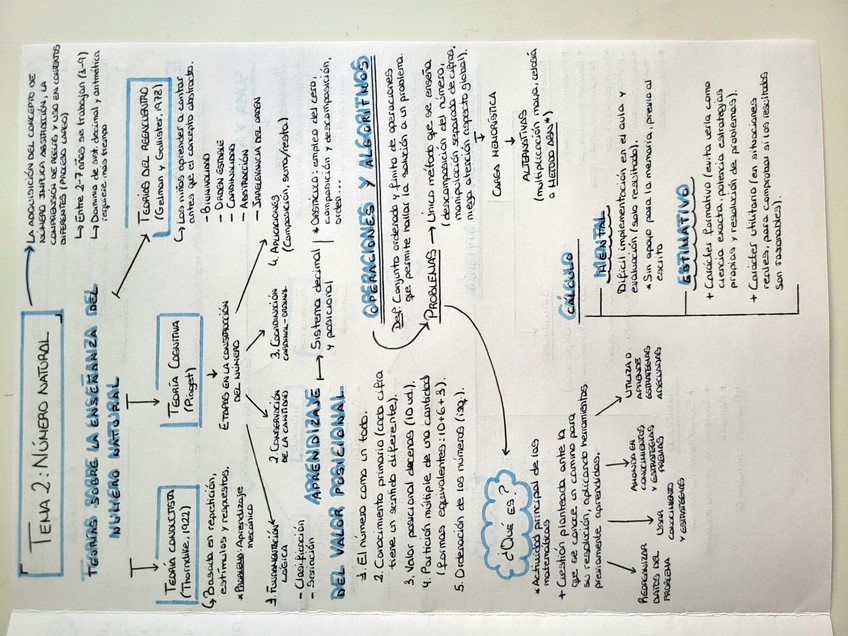 TEMA 2: NÚMERO NATURAL
LA ADQUISICIÓN DEL CONCEPTO DE
NÚMERO IMPLICA ABSTRACCIÓN, LA
COMPRENSIÓN DE REGLAS Y USO EN CONTEXTOS
DIFERENTES (PROCESO LARGO)
↳ Entre 2-7 años se trabajan (1-9)
↳ Dominio de sist. decimal y aritmética
requiere más tiempo
TEORÍAS SOBRE LA ENSEÑANZA DEL
NÚMERO NATURAL
TEORÍA CONDUCTISTA
(Thorndike, 1922)
↳ Basada en repetición,
estímulos y respuestas.
*PROBLEMA: Aprendizaje
mecánico
TEORÍA COGNITIVA
(Piaget)
ETAPAS EN LA CONSTRUCCIÓN
DEL NÚMERO
1. FUNDAMENTACIÓN
LÓGICA
- Clasificación
- Seriación
2. CONSERVACIÓN
DE LA CANTIDAD
3. COORDINACIÓN
CARDINAL-ORDINAL
4. APLICACIONES
(Composición, suma/resta)
TEORÍAS DEL REENCUENTRO
(Gelman y Gallister, 1978)
↳ Los niños aprenden a contar
antes que el concepto abstracto.
- BIUNIVOCIDAD
- ORDEN ESTABLE
- CARDINALIDAD
- ABSTRACCIÓN
- IRRELEVANCIA DEL ORDEN
APRENDIZAJE
DEL VALOR POSICIONAL
Sistema decimal
y posicional
* OBSTÁCULO: empleo del cero,
composición y descomposición,
orden...
1. El número como un todo.
2. Conocimiento primario (cada cifra
tiene un sentido diferente).
3. Valor posicional decenas (10 ud.).
4. Partición múltiple de una cantidad
(formas equivalentes: 10+6+3).
5. Ordenación de los números (izq.).
OPERACIONES Y ALGORITMOS
Def. Conjunto ordenado y finito de operaciones
que permite hallar la solución a un problema.
PROBLEMAS → Único método que se enseña
(descomposición del número,
manipulación separada de cifras,
niega atención respecto global).
CARGA MEMORÍSTICA
ALTERNATIVAS
(multiplicación maya, celosía
o MÉTODO ABN*)
¿QUÉ ES?
* Actividad principal de las
matemáticas
+ Cuestión planteada ante la
que se conoce un camino para
su resolución, aplicando herramientas
previamente aprendidas.
REORGANIZAR
DATOS DEL
PROBLEMA
USAR
CONOCIMIENTO
Y ESTRATEGIAS
AHONDA EN
CONOCIMIENTOS
Y ESTRATEGIAS
PREVIAS
UTILIZA O
APRENDE
ESTRATEGIAS
ADECUADAS
CÁLCULO
MENTAL
Difícil implementación en el aula y
evaluación (solo resultado).
* Sin apoyo para la memoria, previo al
escrito
ESTIMATIVO
+ Carácter formativo (evita verla como
ciencia exacta, potencia estrategias
propias y resolución de problemas).
+ Carácter utilitario (en situaciones
reales, para comprobar si los resultados
son razonables).